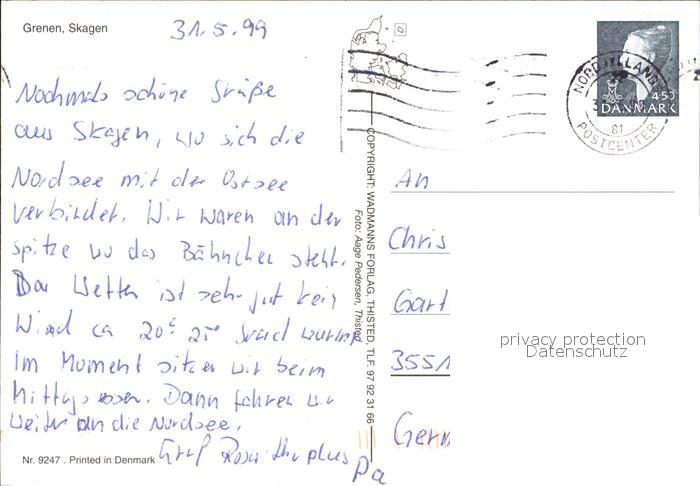 Grenen, Skagen
31.5.99
Nochmals schöne Grüße
aus Skagen, wo sich die
Nordsee mit der Ostsee
verbindet. Wir waren an der
spitze wo das Bähnchen steht.
Das Wetter ist sehr gut kein
Wind ca 20° 25° Grad warm
Im Moment sitzen wir beim
Mittagessen. Dann fahren wir
weiter an die Nordsee.
Gruß
Pa
Nr. 9247 . Printed in Denmark
COPYRIGHT: WADMANNS FORLAG, THISTED, TLF. 97 92 31 66
Foto: Aage Pedersen, Thisted
NORDJYLLANDS
POSTCENTER
81
4.50
DANMARK
An
Chris
Gart
3551
Germ
privacy protection
Datenschutz